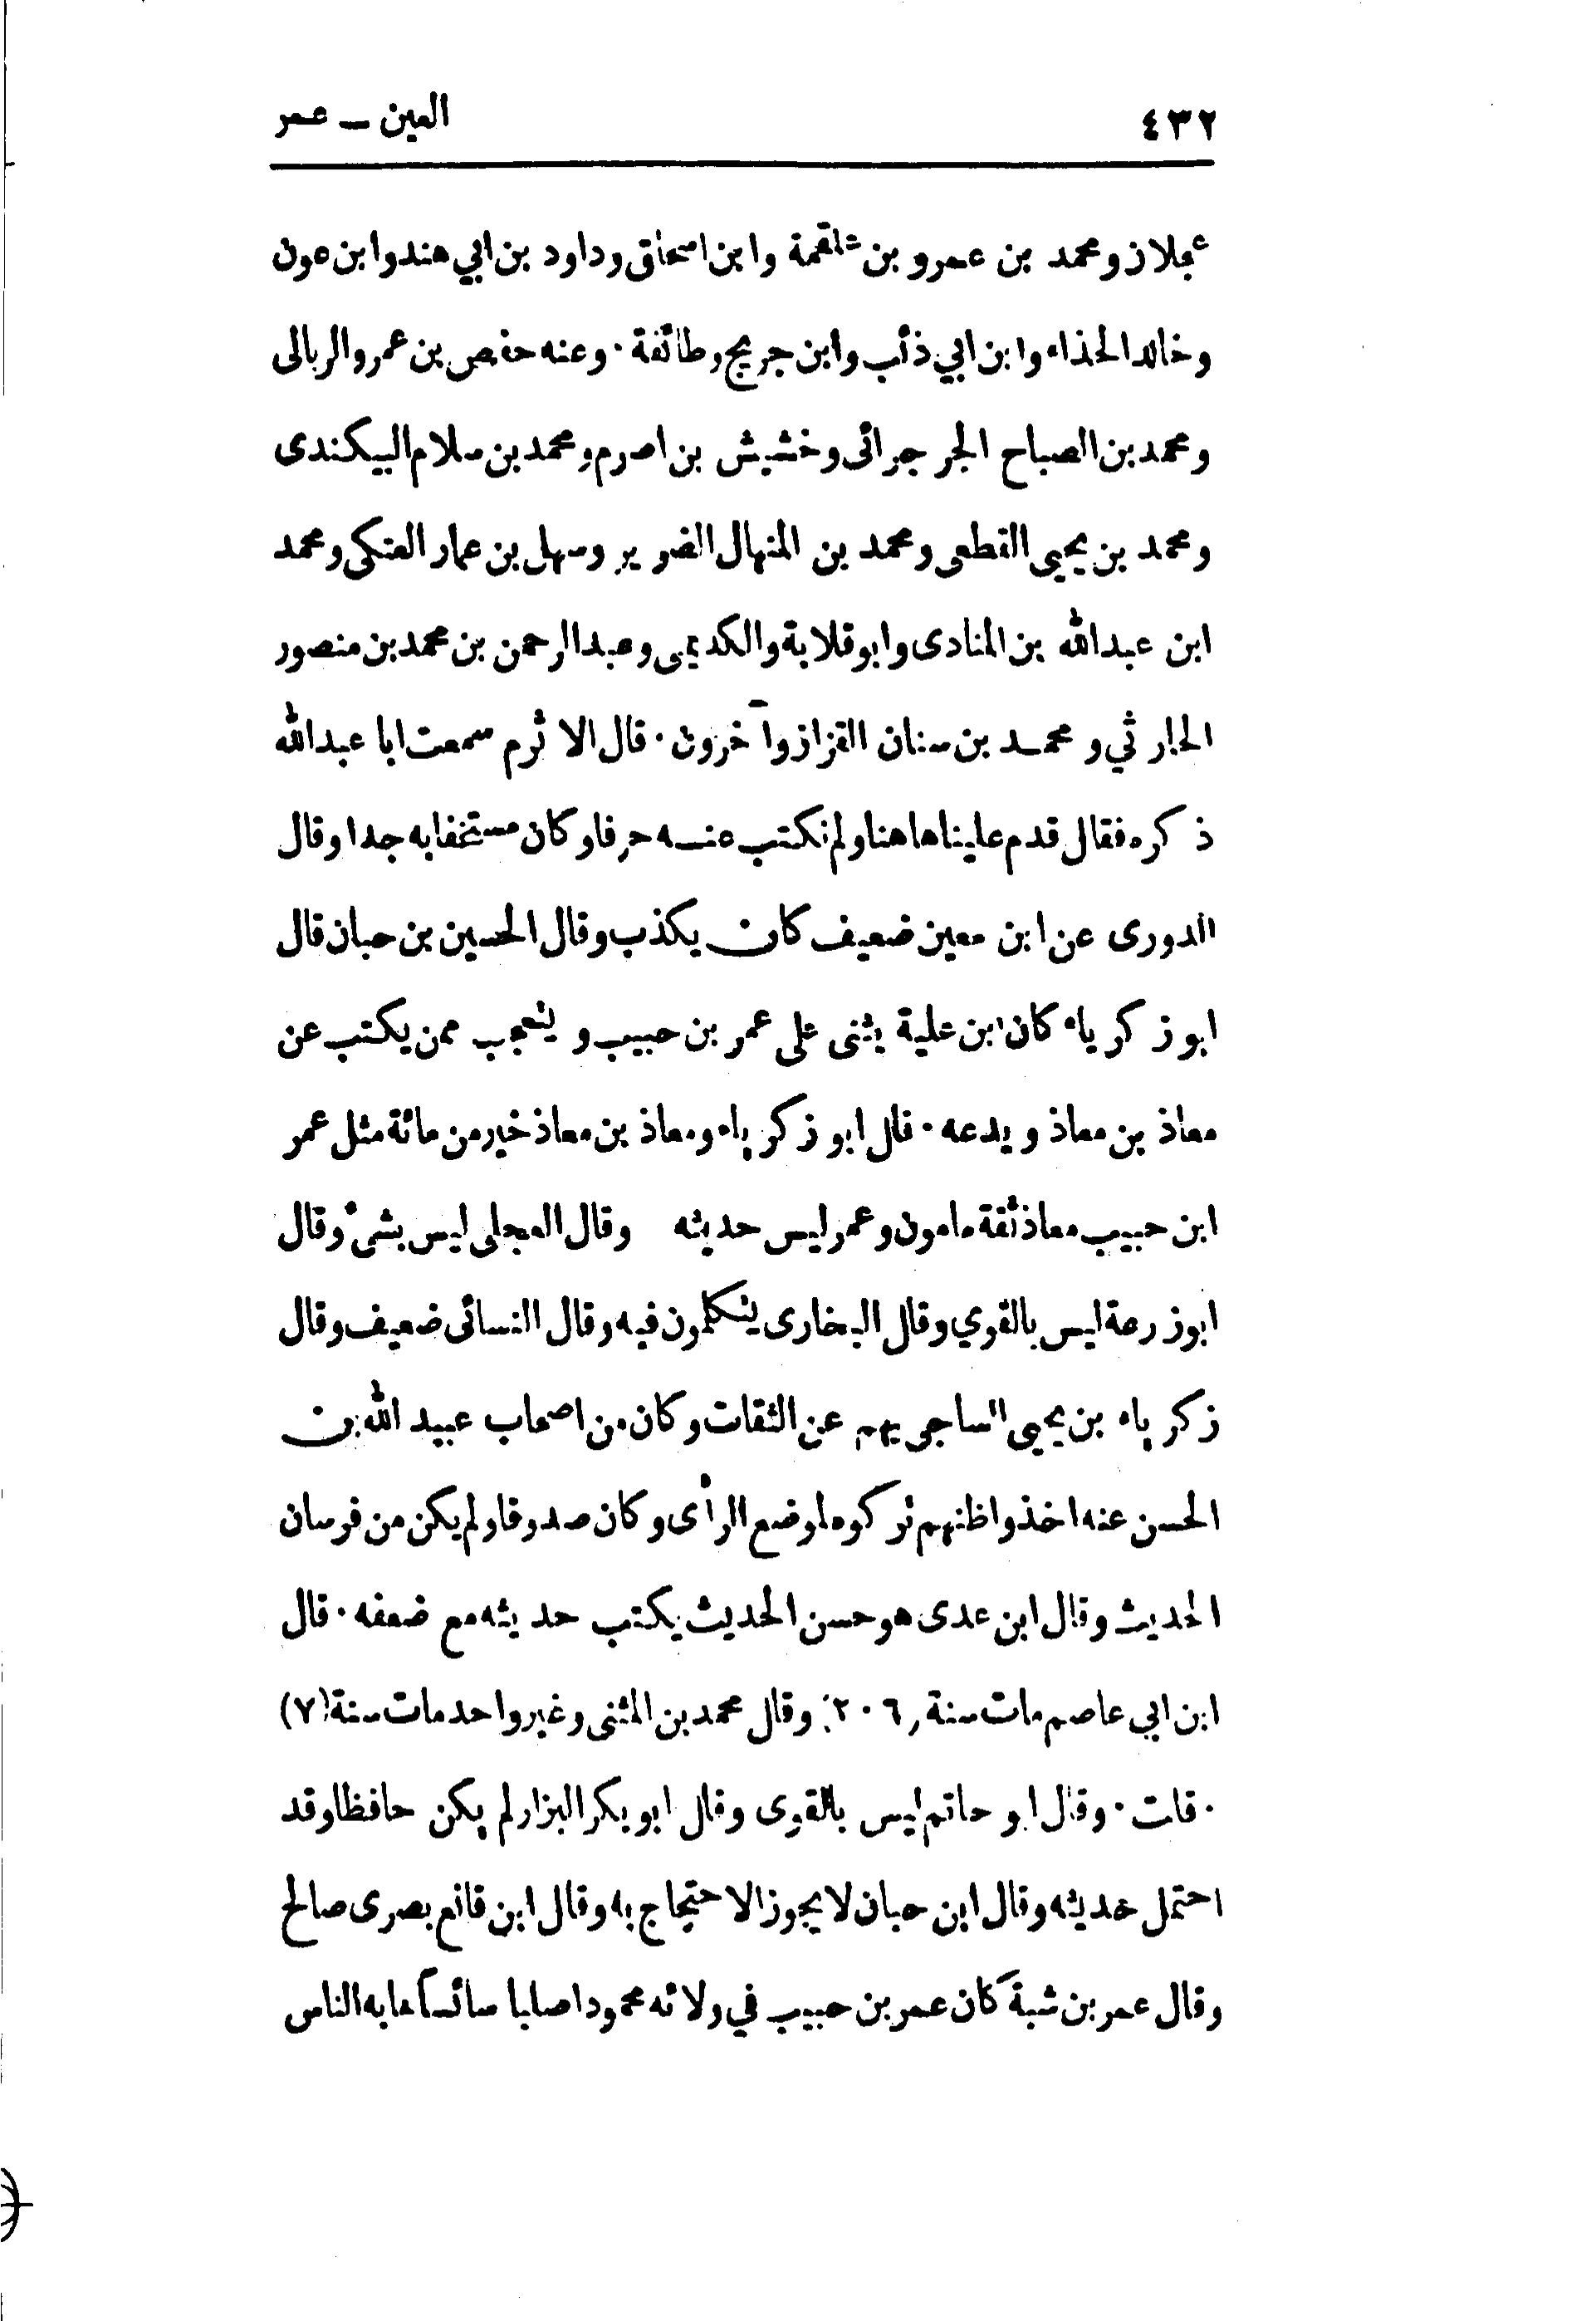 ٤٣٢
العين ــ عمر
عجلان ومحمد بن عمرو بن علقمة وابن اسحاق وداود بن ابي هند وابن عون
وخالد الحذاء وابن ابي ذئب وابن جريج وطائفة · وعنه حفص بن عمرو الربالى
ومحمد بن الصباح الجرجرائى وخشيش بن اصرم ومحمد بن سلام البيكندى
ومحمد بن يحيى القطعى ومحمد بن المنهال الضرير وسهل بن عمار العتكى ومحمد
ابن عبدالله بن المنادى وابو قلابة والكديمى وعبدالرحمن بن محمد بن منصور
الحارثي و محمد بن سنان القزاز وآخرون · قال الاثرم سمعت ابا عبدالله
ذكره فقال قدم علينا هاهنا ولم نكتب عنه حرفا وكان مستخفا به جدا وقال
الدورى عن ابن معين ضعيف كان يكذب وقال الحسين بن حبان قال
ابو زكرياء كان ابن علية يثنى على عمر بن حبيب ويتعجب ممن يكتب عن
معاذ بن معاذ ويدعه · قال ابو زكرياء ومعاذ بن معاذ خير من مائة مثل عمر
ابن حبيب معاذ ثقة مامون وعمر ليس حديثه وقال العجلى ليس بشىء وقال
ابو زرعة ليس بالقوي وقال البخارى يتكلمون فيه وقال النسائى ضعيف وقال
زكرياء بن يحيى الساجى يهم عن الثقات وكان من اصحاب عبيد الله بن
الحسن عنه اخذوا ظنهم تركوه لموضع الرأى وكان صدوقا ولم يكن من فرسان
الحديث وقال ابن عدى هو حسن الحديث يكتب حديثه مع ضعفه · قال
ابن ابي عاصم مات سنة (٢٠٦) وقال محمد بن المثنى وغير واحد مات سنة (٧)
· قلت · وقال ابو حاتم ليس بالقوى وقال ابو بكر البزار لم يكن حافظا وقد
احتمل حديثه وقال ابن حبان لا يجوز الاحتجاج به وقال ابن قانع بصرى صالح
وقال عمر بن شبة كان عمر بن حبيب في ولائه محمودا صلبا سائسا هابه الناس